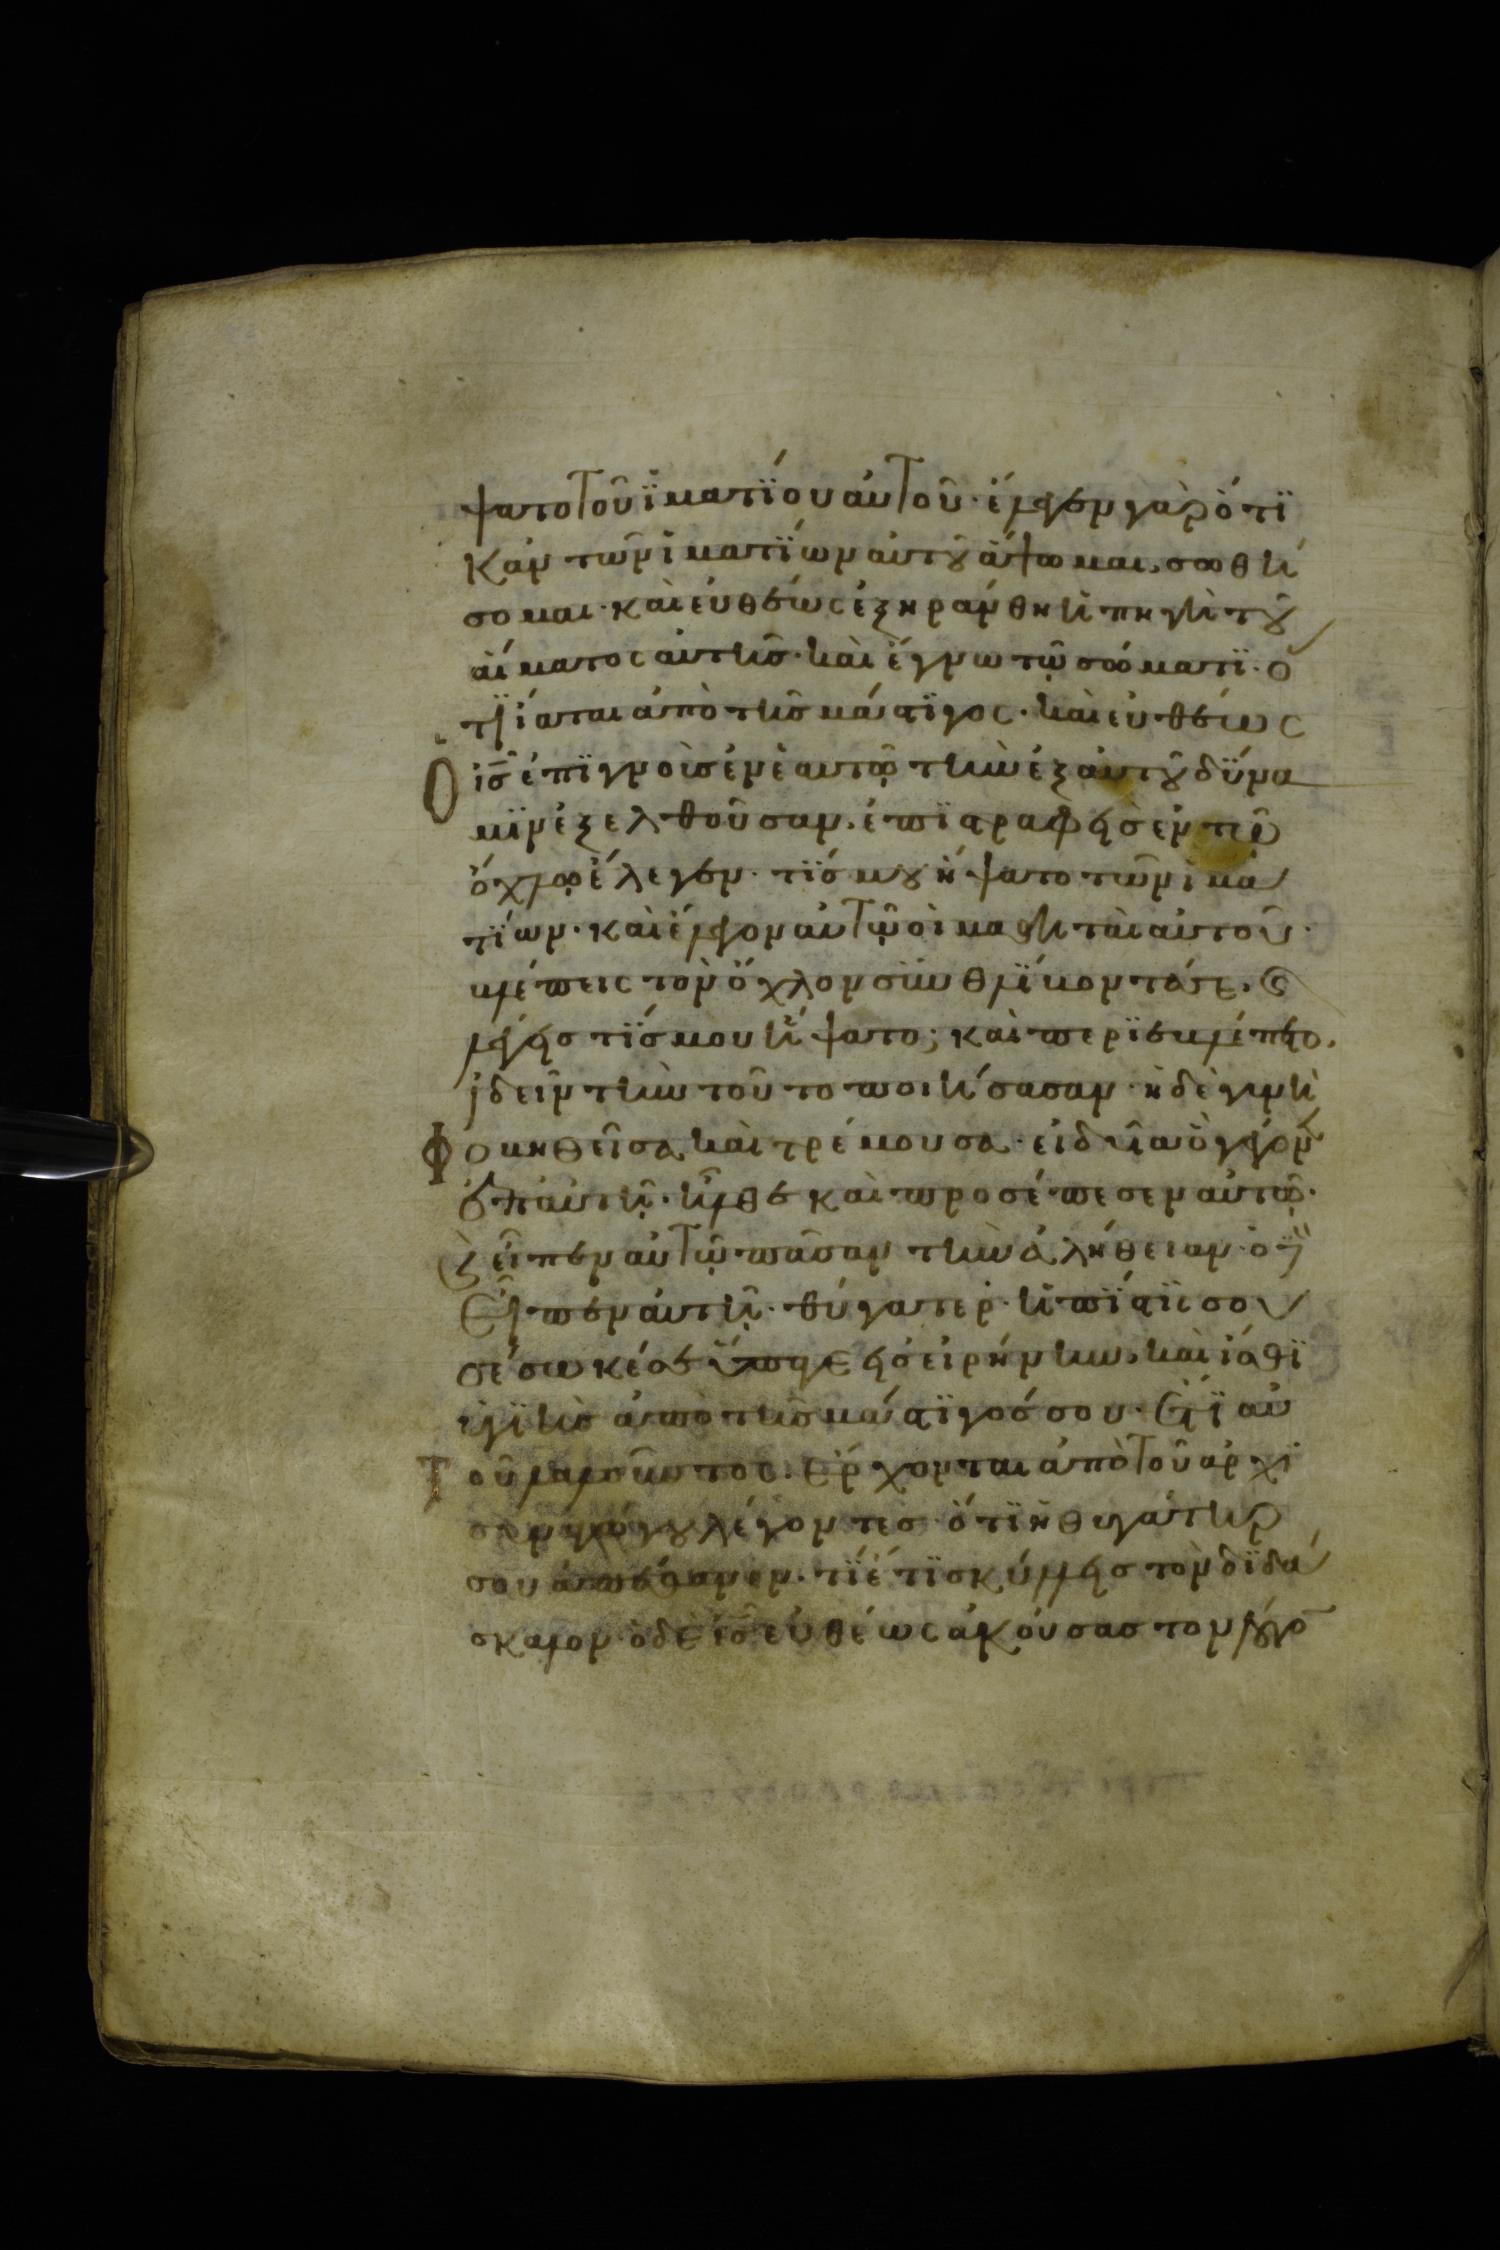 ψατο τοῦ ϊματϊου αὐτοῦ· ἔλεγεν γὰρ ὅτϊ
κἂν τῶν ἱματϊων αὐτοῦ ἅψωμαι, σωθή
σομαι· καὶ εὐθέως ἐξηράνθη ἡ πηγὴ τοῦ
αἵματος αὐτῆς· καὶ ἔγνω τῷ σώματϊ· ὅ
τϊ ἴαται ἀπὸ τῆς μάστϊγος· καὶ εὐθέως
Ὁ ἰς̅ ἐπϊγνοὺς ἐν ἑαυτῷ τὴν ἐξ αὐτοῦ δύνα
μϊν ἐξελθοῦσαν, ἐπϊστραφεὶς ἐν τῷ
ὄχλῳ ἔλεγεν· τίς μου ἥψατο τῶν ἱμα
τϊων· καὶ ἔλεγον αὐτῷ οἱ μαθηταὶ αὐτοῦ·
βλέπεις τὸν ὄχλον συνθλϊβοντά σε, καὶ
λέγεις τίς μου ἥψατο; καὶ περϊεβλέπετο
ἰδεῖν τὴν τοῦτο ποιήσασαν· ἡ δὲ γυνὴ
Φοβηθεῖσα καὶ τρέμουσα· εἰδυῖα ὃ γέγονεν
ἐπ' αὐτῇ· ἦλθε καὶ προσέπεσεν αὐτῷ·
καὶ εἶπεν αὐτῷ πᾶσαν τὴν ἀλήθειαν· ὁ δὲ
Εἶπεν αὐτῇ· θύγατερ· ἡ πϊστϊς σου
σέσωκέ σε ὕπαγε εἰς εἰρήνην, καὶ ἴσθϊ
ὑγϊὴς ἀπὸ τῆς μάστϊγός σου· Ἔτϊ αὐ
Τοῦ λαλοῦντος· ἔρχονται ἀπὸ τοῦ ἀρχϊ
συναγώγου λέγοντες· ὅτϊ ἡ θυγάτηρ
σου ἀπέθανεν· τϊ ἔτϊ σκύλλεις τὸν δϊδά
σκαλον· ὁ δὲ ἰς̅ εὐθέως ἀκούσας τὸν λόγο̅